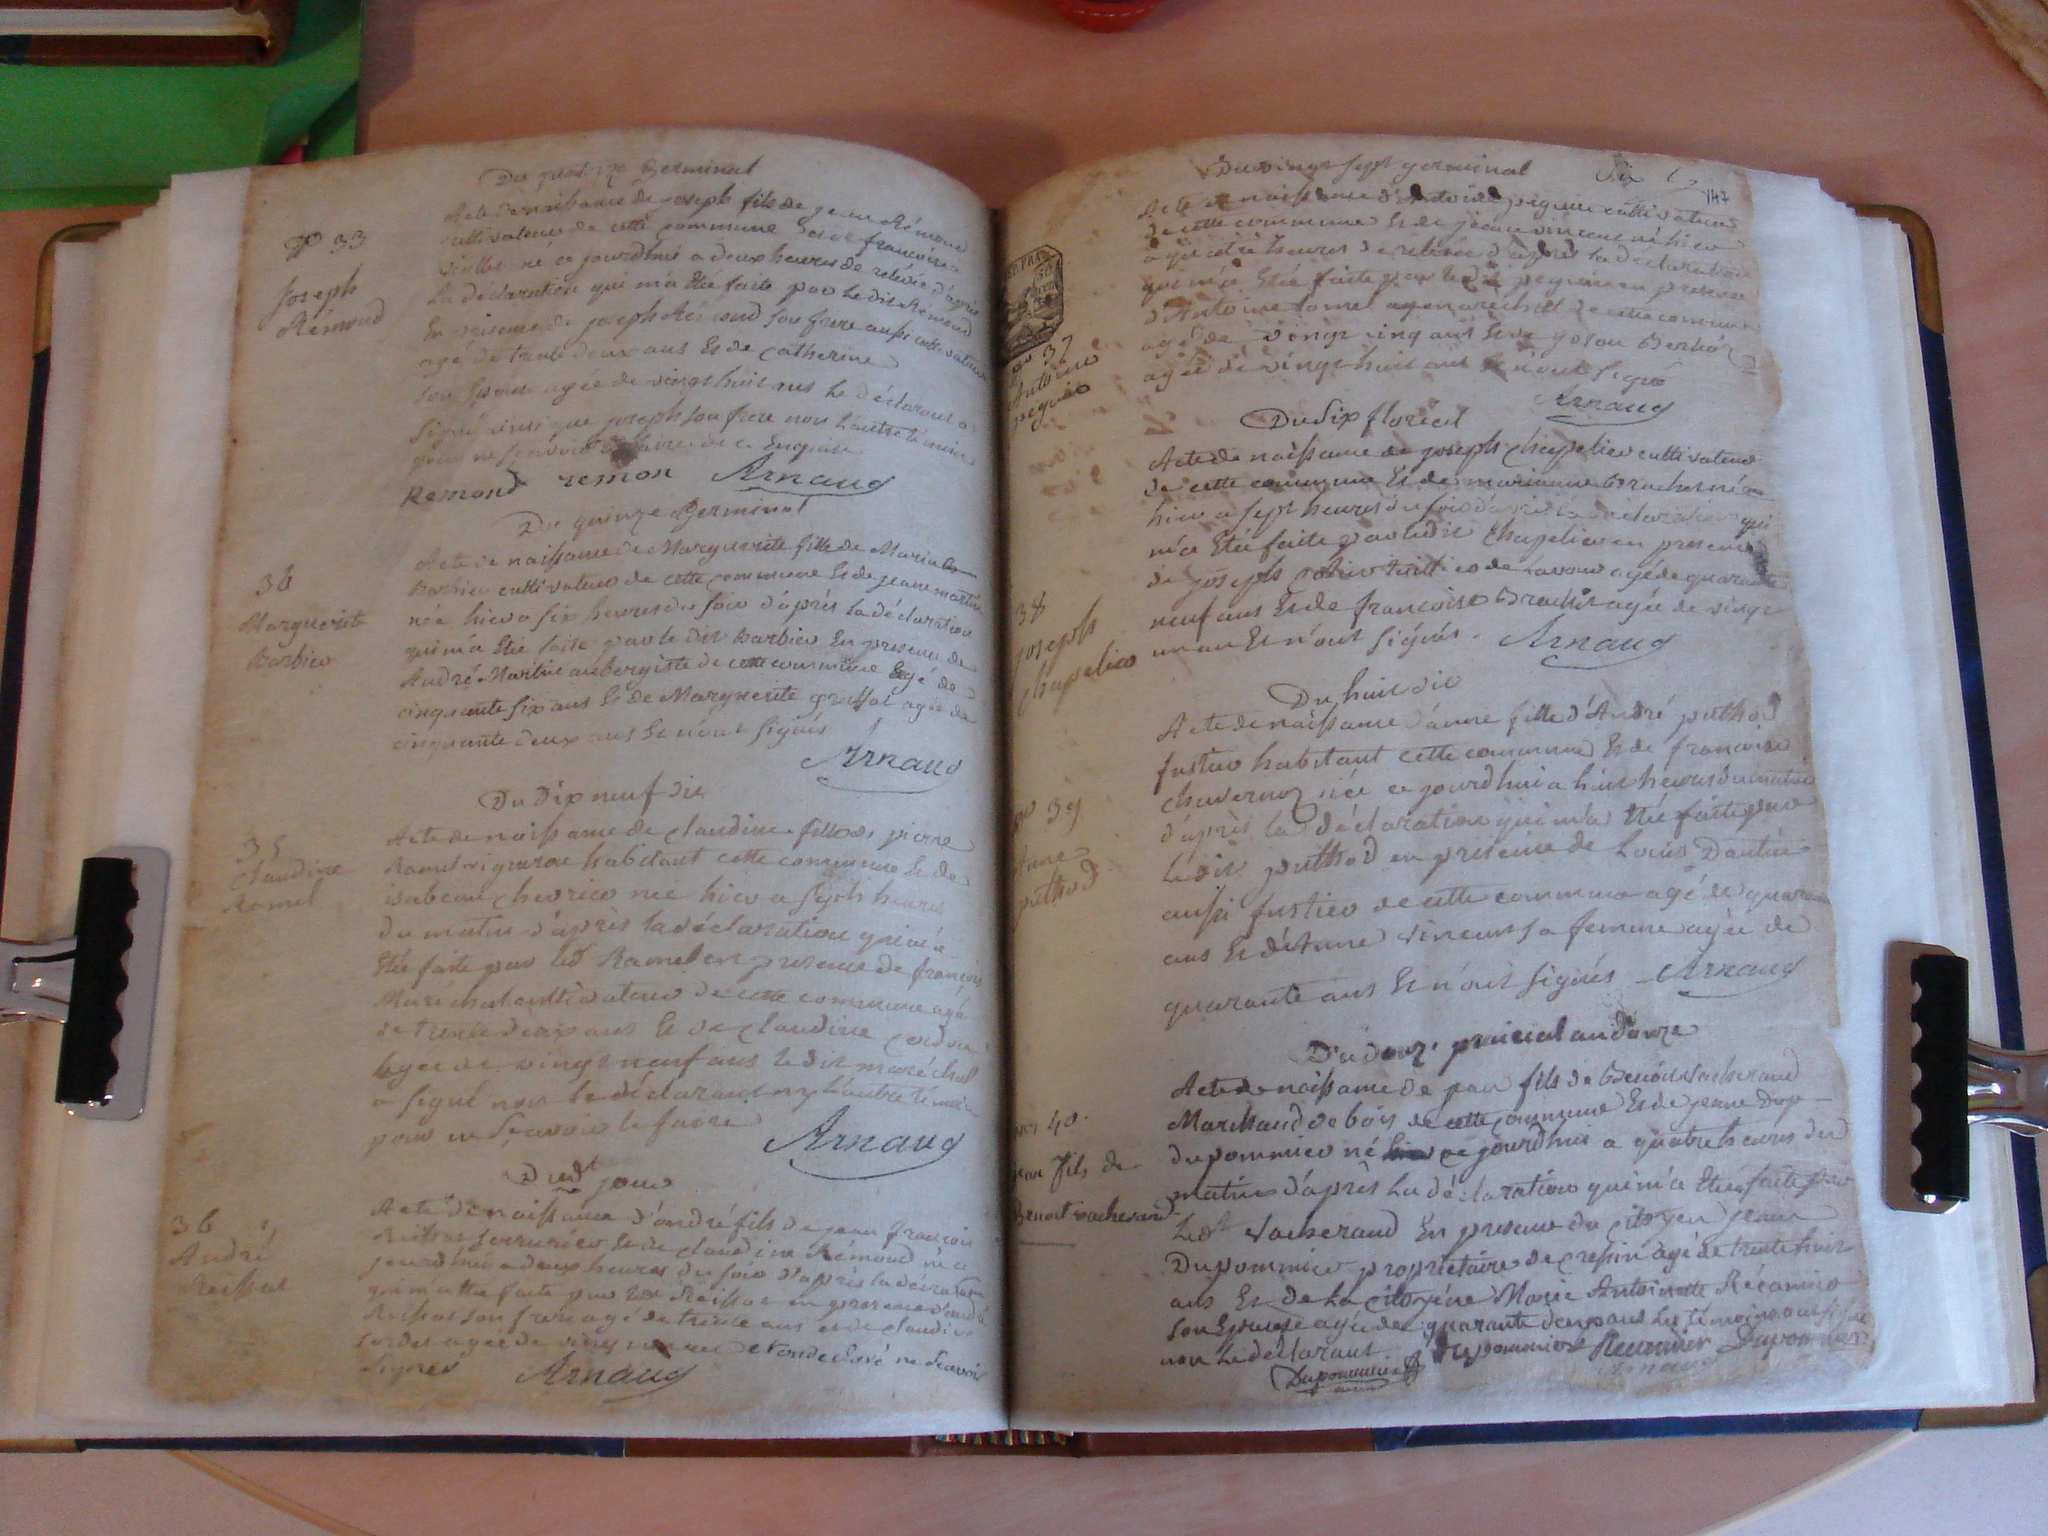 Du quatorze Germinal
N° 33
Joseph
Rémond
Acte de naissance de joseph fils de jean Rémond
cultivateur de cette commune et de francoise
né ce jourdhui a deux heures de relevée d'après
la déclaration qui m'a Etée faite par le dit Rémond
En presence de joseph Rémond son frere aussi cultivateur
agé de trente deux ans Et de Catherine
son Epouse agée de vingt huit ans le déclarant a
signé ainsi que joseph son frere non l'autre témoin
pour ne sçavoir le faire de ce Enquise
Remond remon Arnaud
Du quinze Germinal
34
Marguerite
Barbier
Acte de naissance de Marguerite fille de Marin
Barbier cultivateur de cette commune Et de jeanne martin
née hier a six heures du soir d'après la déclaration
qui m'a Etée faite par le dit Barbier En presence de
André Martin aubergiste de cette commune Agé de
cinquante six ans Et de Marguerite agée de
cinquante deux ans Et n'ont signés
Arnaud
Du Dix neuf dit
35
Claudine
Ramel
Acte de naissance de claudine fille de pierre
Ramel vigneron habitant cette commune Et de
isabeau chevrier née hier a sept heures
Du matin d'après la déclaration qui m'a
Etée faite par led Ramel en presence de françois
Maréchal cultivateur de cette commune agé
de trente deux ans Et de claudine
agée de vingt neuf ans le dit maréchal
a signé non le déclarant ny l'autre témoin
pour ne sçavoir le faire
Arnaud
Dudt jour
36
André
Reissat
Acte de naissance d'andré fils de jean françois
Reissat serrurier Et de claudine Rémond né a
jourdhui a deux heures du soir d'après la déclaration
qui m'a Etée faite par led Reissat en presence d'andré
Reissat son frere agé de trente ans et de claudine
agée de vingt et ont déclaré ne sçavoir
signer Arnaud
Du vingt sept germinal
147
Acte de naissance d'Antoine peguin cultivateur
de cette commune Et de jeanne vincent né hier
a quatre heures de relevée d'après la déclaration
qui m'a Etée faite par le dit peguin en presence
d'Antoine maréchal de cette commune
agé de vingt cinq ans Et de
agée de vingt huit ans Et n'ont signé
N° 37
Antoine
peguin
Arnaud
Du six floréal
Acte de naissance de joseph Chapelier cultivateur
de cette commune Et de marianne Brachet né
hier a sept heures du soir d'après la déclaration qui
m'a Etée faite par ledit Chapelier en presence
de joseph agé de quarante
neuf ans Et de francoise Brachet agée de vingt
un an Et n'ont signés. Arnaud
38
joseph
Chapelier
Du huit dit
Acte de naissance d'anne fille d'André puthod
fustier habitant cette commune Et de francoise
chavernoz née ce jourdhui a huit heures du matin
d'après la déclaration qui m'a Etée faite par
le dit puthod en presence de Louis
aussi fustier de cette commune agé de quarante
ans Et d'Anne vincent sa femme agée de
quarante ans Et n'ont signés Arnaud
N° 39
Anne
puthod
Du douze prairial an douze
Acte de naissance de jean fils de Benoit Vacherand
Marchand de bois de cette commune Et de jeane Dup
dupommier né ce jourdhui a quatre heures du
matin d'après la déclaration qui m'a Etée faite par
le dt Vacherand En presence du citoyen jean
Dupommier propriétaire de cressin agé de trente huit
ans Et de la citoyene Marie Antoinette Récamier
son Epouse agée de quarante deux ans les témoins ont signé
non le déclarant. Dupommier Dupommier
Dupommier
N° 40.
jean fils de
Benoit vacherand